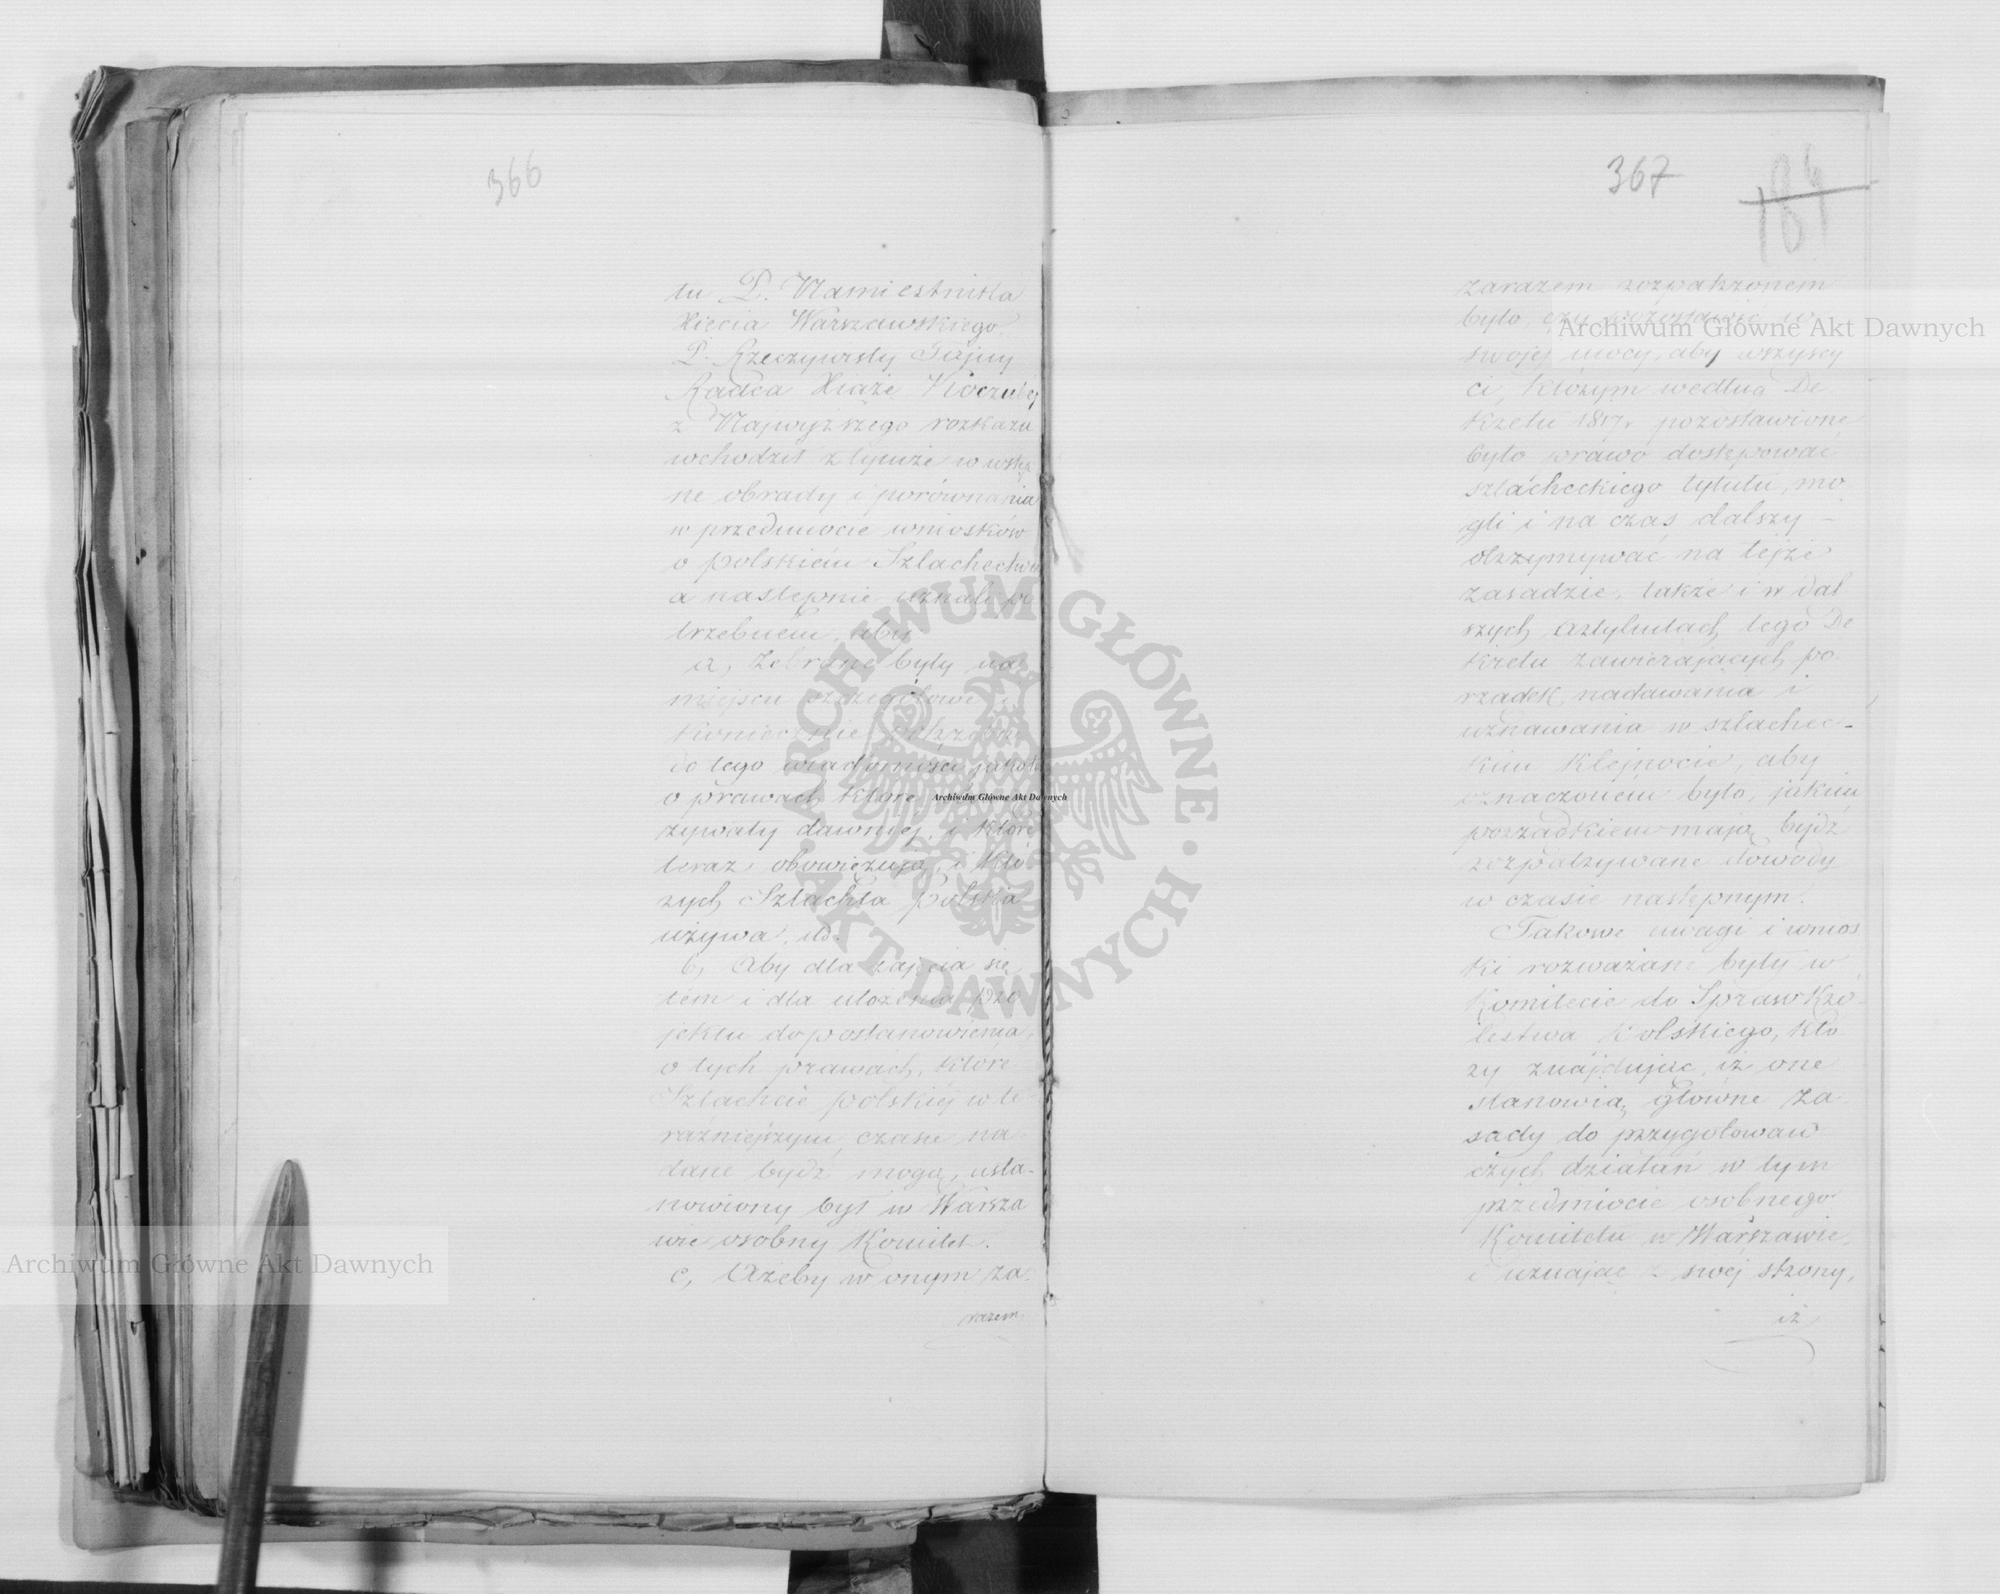 366
tu P. Namiestnika
Xięcia Warszawskiego.
P. Rzeczywisty Tajny
Radca Xiąże Koczubej
z Najwyższego rozkazu
wchodził z tymże w wstęp
ne obrady i porównania
w przedmiocie wniosków
o polskiem Szlachectwie
a następnie uznali po
trzebnem, aby
a, Zebrane były na
miejscu szczegółowe i
koniecznie potrzebne
do tego wiadomości jakoto
o prawach które
zywały dawniej, i które
teraz obowiezują, i któ
rych Szlachta polska
używa, itd.
b, Aby dla zajęcia się
tem i dla ułożenia pro
jektu do postanowienia,
o tych prawach, które
Szlachcie polskiéj w te
raźniejszym czasie na
dane bydź mogą, usta-
nowiony był w Warsza
wie osobny Komitet.
c, Ażeby w onym za-
razem
367
184
zarazem rozpatrzonem
było, czy pozostawić w
swojej mocy, aby wszyscy
ci, którym według De
kretu 1817r pozostawione
było prawo dostępować
szlacheckiego tytułu, mo
gli i na czas dalszy -
otrzymywać na tejże
zasadzie, także i w dal
szych artykułach tego De
kretu zawierających po-
rządek nadawania i
uznawania w szlachec-
kim klejnocie, aby
oznaczonem było jakim
porządkiem mają bydź
rozpatrywane dowody
w czasie następnym.
Takowe uwagi i wnios
ki rozważane były w
Komitecie do Spraw Kró-
lestwa Polskiego, któ
ry znajdując, iż one
stanowią główne za
sady do przygotowaw
czych działań w tym
przedmiocie osobnego
Komitetu w Warszawie,
i uznając z swej strony,
iż
Archiwum Główne Akt Dawnych
Archiwum Główne Akt Dawnych
Archiwum Główne Akt Dawnych
ARCHIWUM GŁÓWNE · AKT DAWNYCH ·